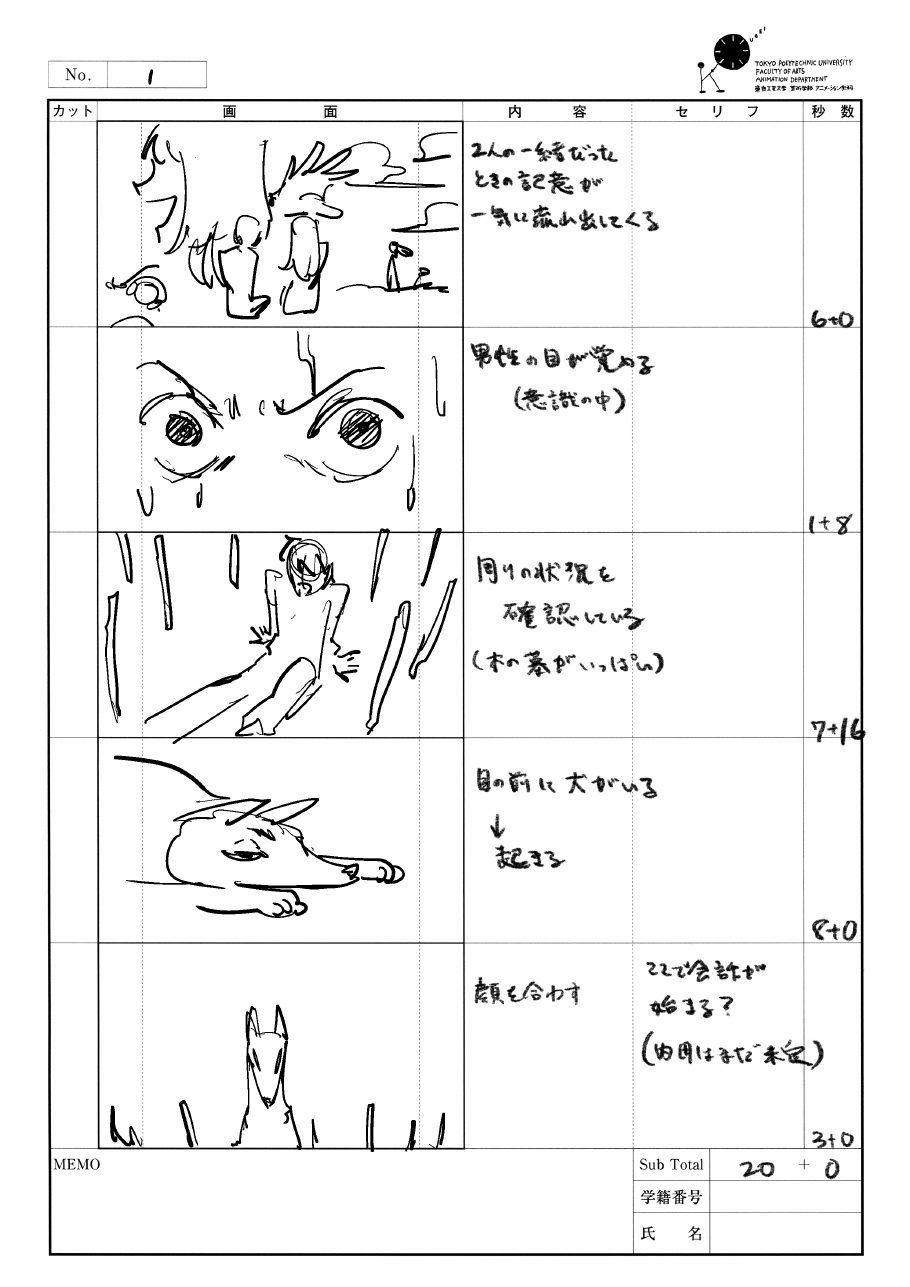 No. 1
UGEI
TOKYO POLYTECHNIC UNIVERSITY
FACULTY OF ARTS
ANIMATION DEPARTMENT
東京工芸大学 芸術学部 アニメーション学科
カット 画面 内容 セリフ 秒数
2人の一緒だった
ときの記憶が
一気に流れ出してくる
6+0
男性の目が覚める
(意識の中)
1+8
周りの状況を
確認している
(木の墓がいっぱい)
7+16
目の前に犬がいる
↓
起きる
8+0
顔を合わす
ここで会話が
始まる?
(内用はまだ未定)
3+0
MEMO
Sub Total 20 + 0
学籍番号
氏名